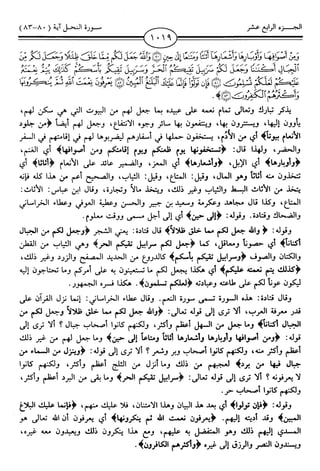 الجزء الرابع عشر
سورة النحل آية (٨٠ – ٨٣)
١٠١٩
وَمِنْ أَصْوَافِهَا وَأَوْبَارِهَا وَأَشْعَارِهَا أَثَاثًا وَمَتَاعًا إِلَى حِينٍ وَاللَّهُ جَعَلَ لَكُم مِّمَّا خَلَقَ ظِلَالًا وَجَعَلَ لَكُم مِّنَ
الْجِبَالِ أَكْنَانًا وَجَعَلَ لَكُمْ سَرَابِيلَ تَقِيكُمُ الْحَرَّ وَسَرَابِيلَ تَقِيكُم بَأْسَكُمْ كَذَلِكَ يُتِمُّ نِعْمَتَهُ
عَلَيْكُمْ لَعَلَّكُمْ تُسْلِمُونَ فَإِن تَوَلَّوْا فَإِنَّمَا عَلَيْكَ الْبَلَاغُ الْمُبِينُ يَعْرِفُونَ نِعْمَتَ اللَّهِ ثُمَّ يُنكِرُونَهَا
وَأَكْثَرُهُمُ الْكَافِرُونَ
يذكر تبارك وتعالى تمام نعمه على عبيده بما جعل لهم من البيوت التي هي سكن لهم،
يأوون إليها، ويستترون بها، وينتفعون بها سائر وجوه الانتفاع، وجعل لهم أيضاً ﴿من جلود
الأنعام بيوتاً﴾ أي من الأدم، يستخفون حملها في أسفارهم ليضربوها لهم في إقامتهم في السفر
والحضر، ولهذا قال: ﴿تستخفونها يوم ظعنكم ويوم إقامتكم ومن أصوافها﴾ أي الغنم،
﴿وأوبارها﴾ أي الإبل، ﴿وأشعارها﴾ أي المعز، والضمير عائد على الأنعام ﴿أثاثاً﴾ أي
تتخذون منه أثاثاً وهو المال، وقيل: المتاع، وقيل: الثياب، والصحيح أعم من هذا كله فإنه
يتخذ من الأثاث البسط والثياب وغير ذلك، ويتخذ مالاً وتجارة، وقال ابن عباس: الأثاث:
المتاع، وكذا قال مجاهد وعكرمة وسعيد بن جبير والحسن وعطية العوفي وعطاء الخراساني
والضحاك وقتادة. وقوله: ﴿إلى حين﴾ أي إلى أجل مسمى ووقت معلوم.
وقوله: ﴿والله جعل لكم مما خلق ظلالاً﴾ قال قتادة: يعني الشجر ﴿وجعل لكم من الجبال
أكناناً﴾ أي حصوناً ومعاقل، كما ﴿جعل لكم سرابيل تقيكم الحر﴾ وهي الثياب من القطن
والكتان والصوف ﴿وسرابيل تقيكم بأسكم﴾ كالدروع من الحديد المصفح والزرد وغير ذلك،
﴿كذلك يتم نعمته عليكم﴾ أي هكذا يجعل لكم ما تستعينون به على أمركم وما تحتاجون إليه
ليكون عوناً لكم على طاعته وعبادته ﴿لعلكم تسلمون﴾. هكذا فسره الجمهور.
وقال قتادة: هذه السورة تسمى سورة النعم. وقال عطاء الخراساني: إنما نزل القرآن على
قدر معرفة العرب، ألا ترى إلى قوله تعالى: ﴿والله جعل لكم مما خلق ظلالاً وجعل لكم من
الجبال أكناناً﴾ وما جعل من السهل أعظم وأكثر، ولكنهم كانوا أصحاب جبال؟ ألا ترى إلى
قوله: ﴿ومن أصوافها وأوبارها وأشعارها أثاثاً ومتاعاً إلى حين﴾ وما جعل لهم من غير ذلك
أعظم وأكثر منه، ولكنهم كانوا أصحاب وبر وشعر؟ ألا ترى إلى قوله: ﴿وينزل من السماء من
جبال فيها من برد﴾ لعجبهم من ذلك وما أنزل من الثلج أعظم وأكثر، ولكنهم كانوا
لا يعرفونه؟ ألا ترى إلى قوله تعالى: ﴿سرابيل تقيكم الحر﴾ وما بقي من البرد أعظم وأكثر،
ولكنهم كانوا أصحاب حر.
وقوله: ﴿فإن تولوا﴾ أي بعد هذا البيان وهذا الامتنان، فلا عليك منهم، ﴿فإنما عليك البلاغ
المبين﴾ وقد أديته إليهم. ﴿يعرفون نعمت الله ثم ينكرونها﴾ أي يعرفون أن الله تعالى هو
المسدي إليهم ذلك وهو المتفضل به عليهم، ومع هذا ينكرون ذلك ويعبدون معه غيره،
ويسندون النصر والرزق إلى غيره ﴿وأكثرهم الكافرون﴾.